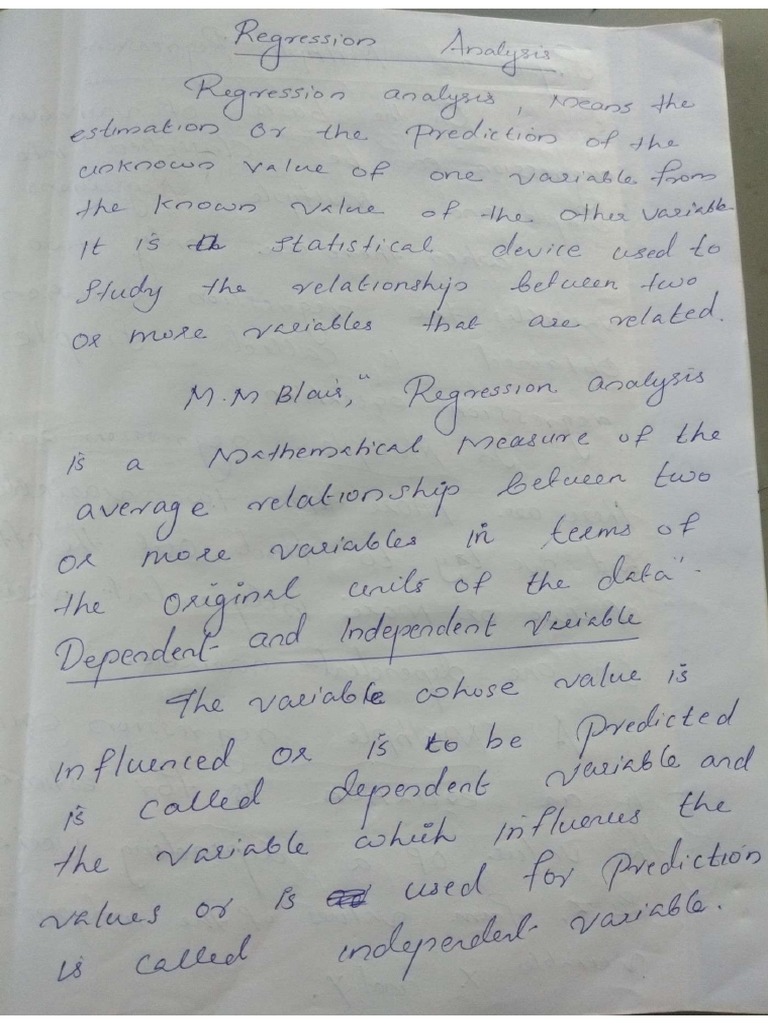 Regression Analysis
Regression analysis, means the
estimation or the prediction of the
unknown value of one variable from
the known value of the other variable.
It is statistical device used to
study the relationship between two
or more variables that are related.
M.M Blair, " Regression analysis
is a Mathematical measure of the
average relationship between two
or more variables in terms of
the original units of the data".
Dependent and Independent Variable
The variable whose value is
influenced or is to be predicted
is called dependent variable and
the variable which influenes the
values or is used for prediction
is called independent variable.